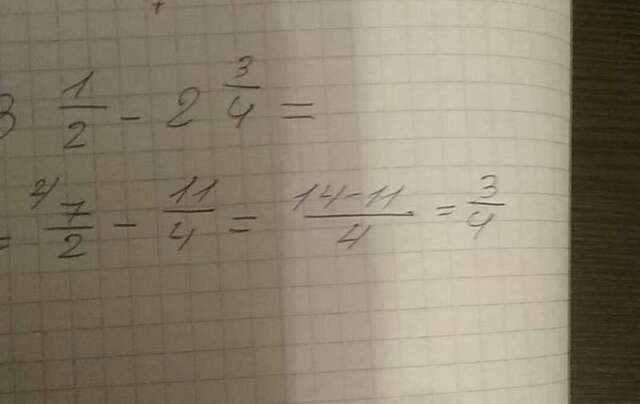 3 1/2 - 2 3/4 =
= 2/ 7/2 - 11/4 = 14-11/4 = 3/4